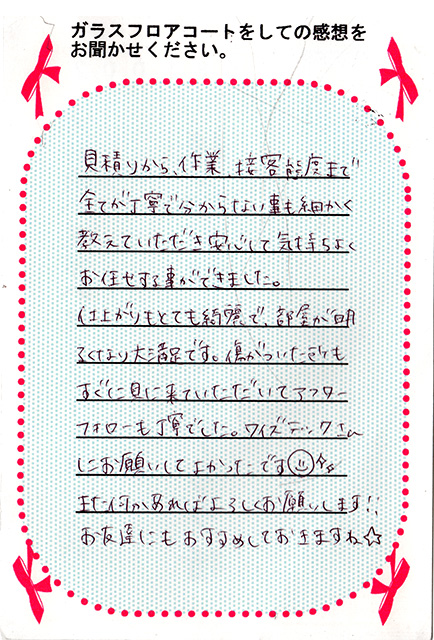 ガラスフロアコートをしての感想を
お聞かせください。
見積りから、作業、接客態度まで
全てが丁寧で分からない事も細かく
教えていただき安心して気持ちよく
お任せする事ができました。
仕上がりもとても綺麗で、部屋が明
るくなり大満足です。傷がついた時も
すぐに見に来ていただいてアフター
フォローも丁寧でした。ワイズテックさん
にお願いしてよかったです☺
また何かあればよろしくお願いします!!
お友達にもおすすめしておきますね☆